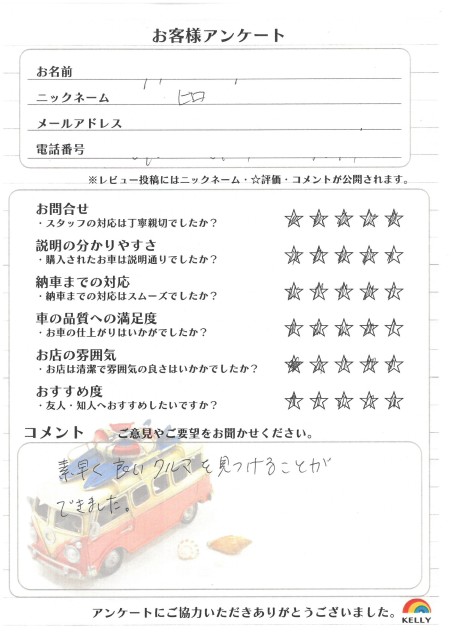 お客様アンケート
お名前
ニックネーム ヒロ
メールアドレス
電話番号
※レビュー投稿にはニックネーム・☆評価・コメントが公開されます。
お問合せ
・スタッフの対応は丁寧親切でしたか?
説明の分かりやすさ
・購入されたお車は説明通りでしたか?
納車までの対応
・納車までの対応はスムーズでしたか?
車の品質への満足度
・お車の仕上がりはいかがでしたか?
お店の雰囲気
・お店は清潔で雰囲気の良さはいかがでしたか?
おすすめ度
・友人・知人へおすすめしたいですか?
コメント ご意見やご要望をお聞かせください。
素早く良いクルマを見つけることが
できました。
アンケートにご協力いただきありがとうございました。
KELLY